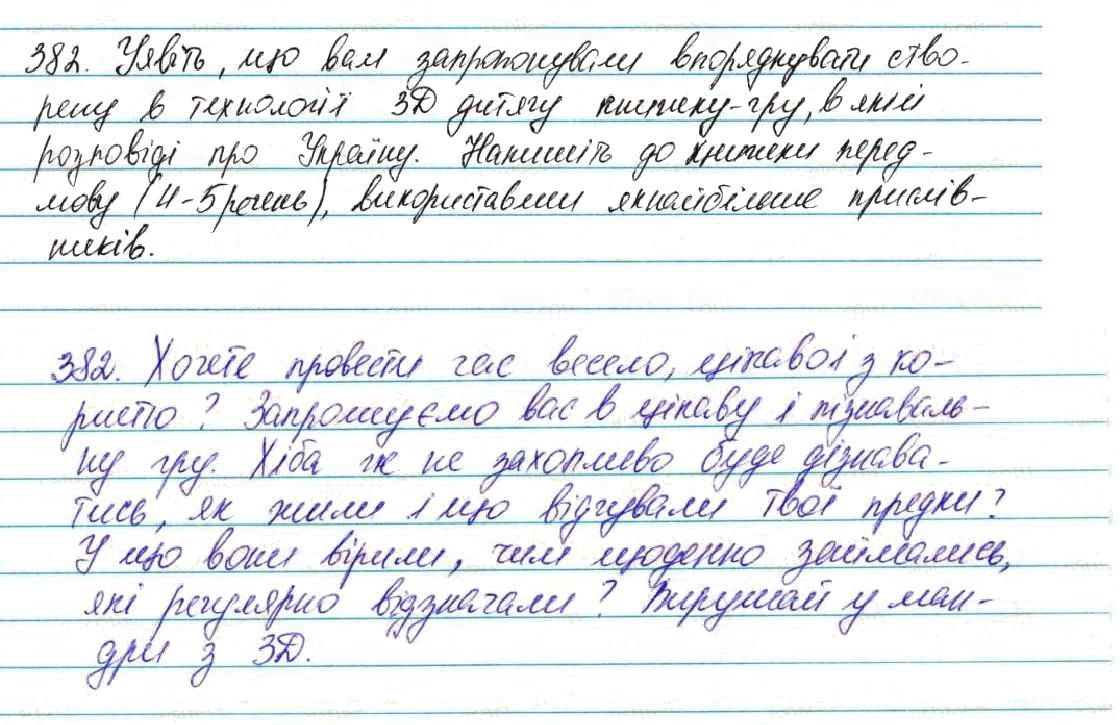 382. Уявіть, що вам запропонували впорядкувати ство-
рену в технології 3D дитячу книжку-гру, в якій
розповіді про Україну. Напишіть до книжки перед-
мову (4-5 речень), використавши якнайбільше прислів-
ників.
382. Хочете провести час весело, цікаво і з ко-
ристю? Запрошуємо вас в цікаву і пізнаваль-
ну гру. Хіба ж не захопливо буде дізнава-
тись, як жили і що відчували твої предки?
У що вони вірили, чим щоденно займались,
які регулярно відзначали? Вирушай у ман-
дри з 3D.